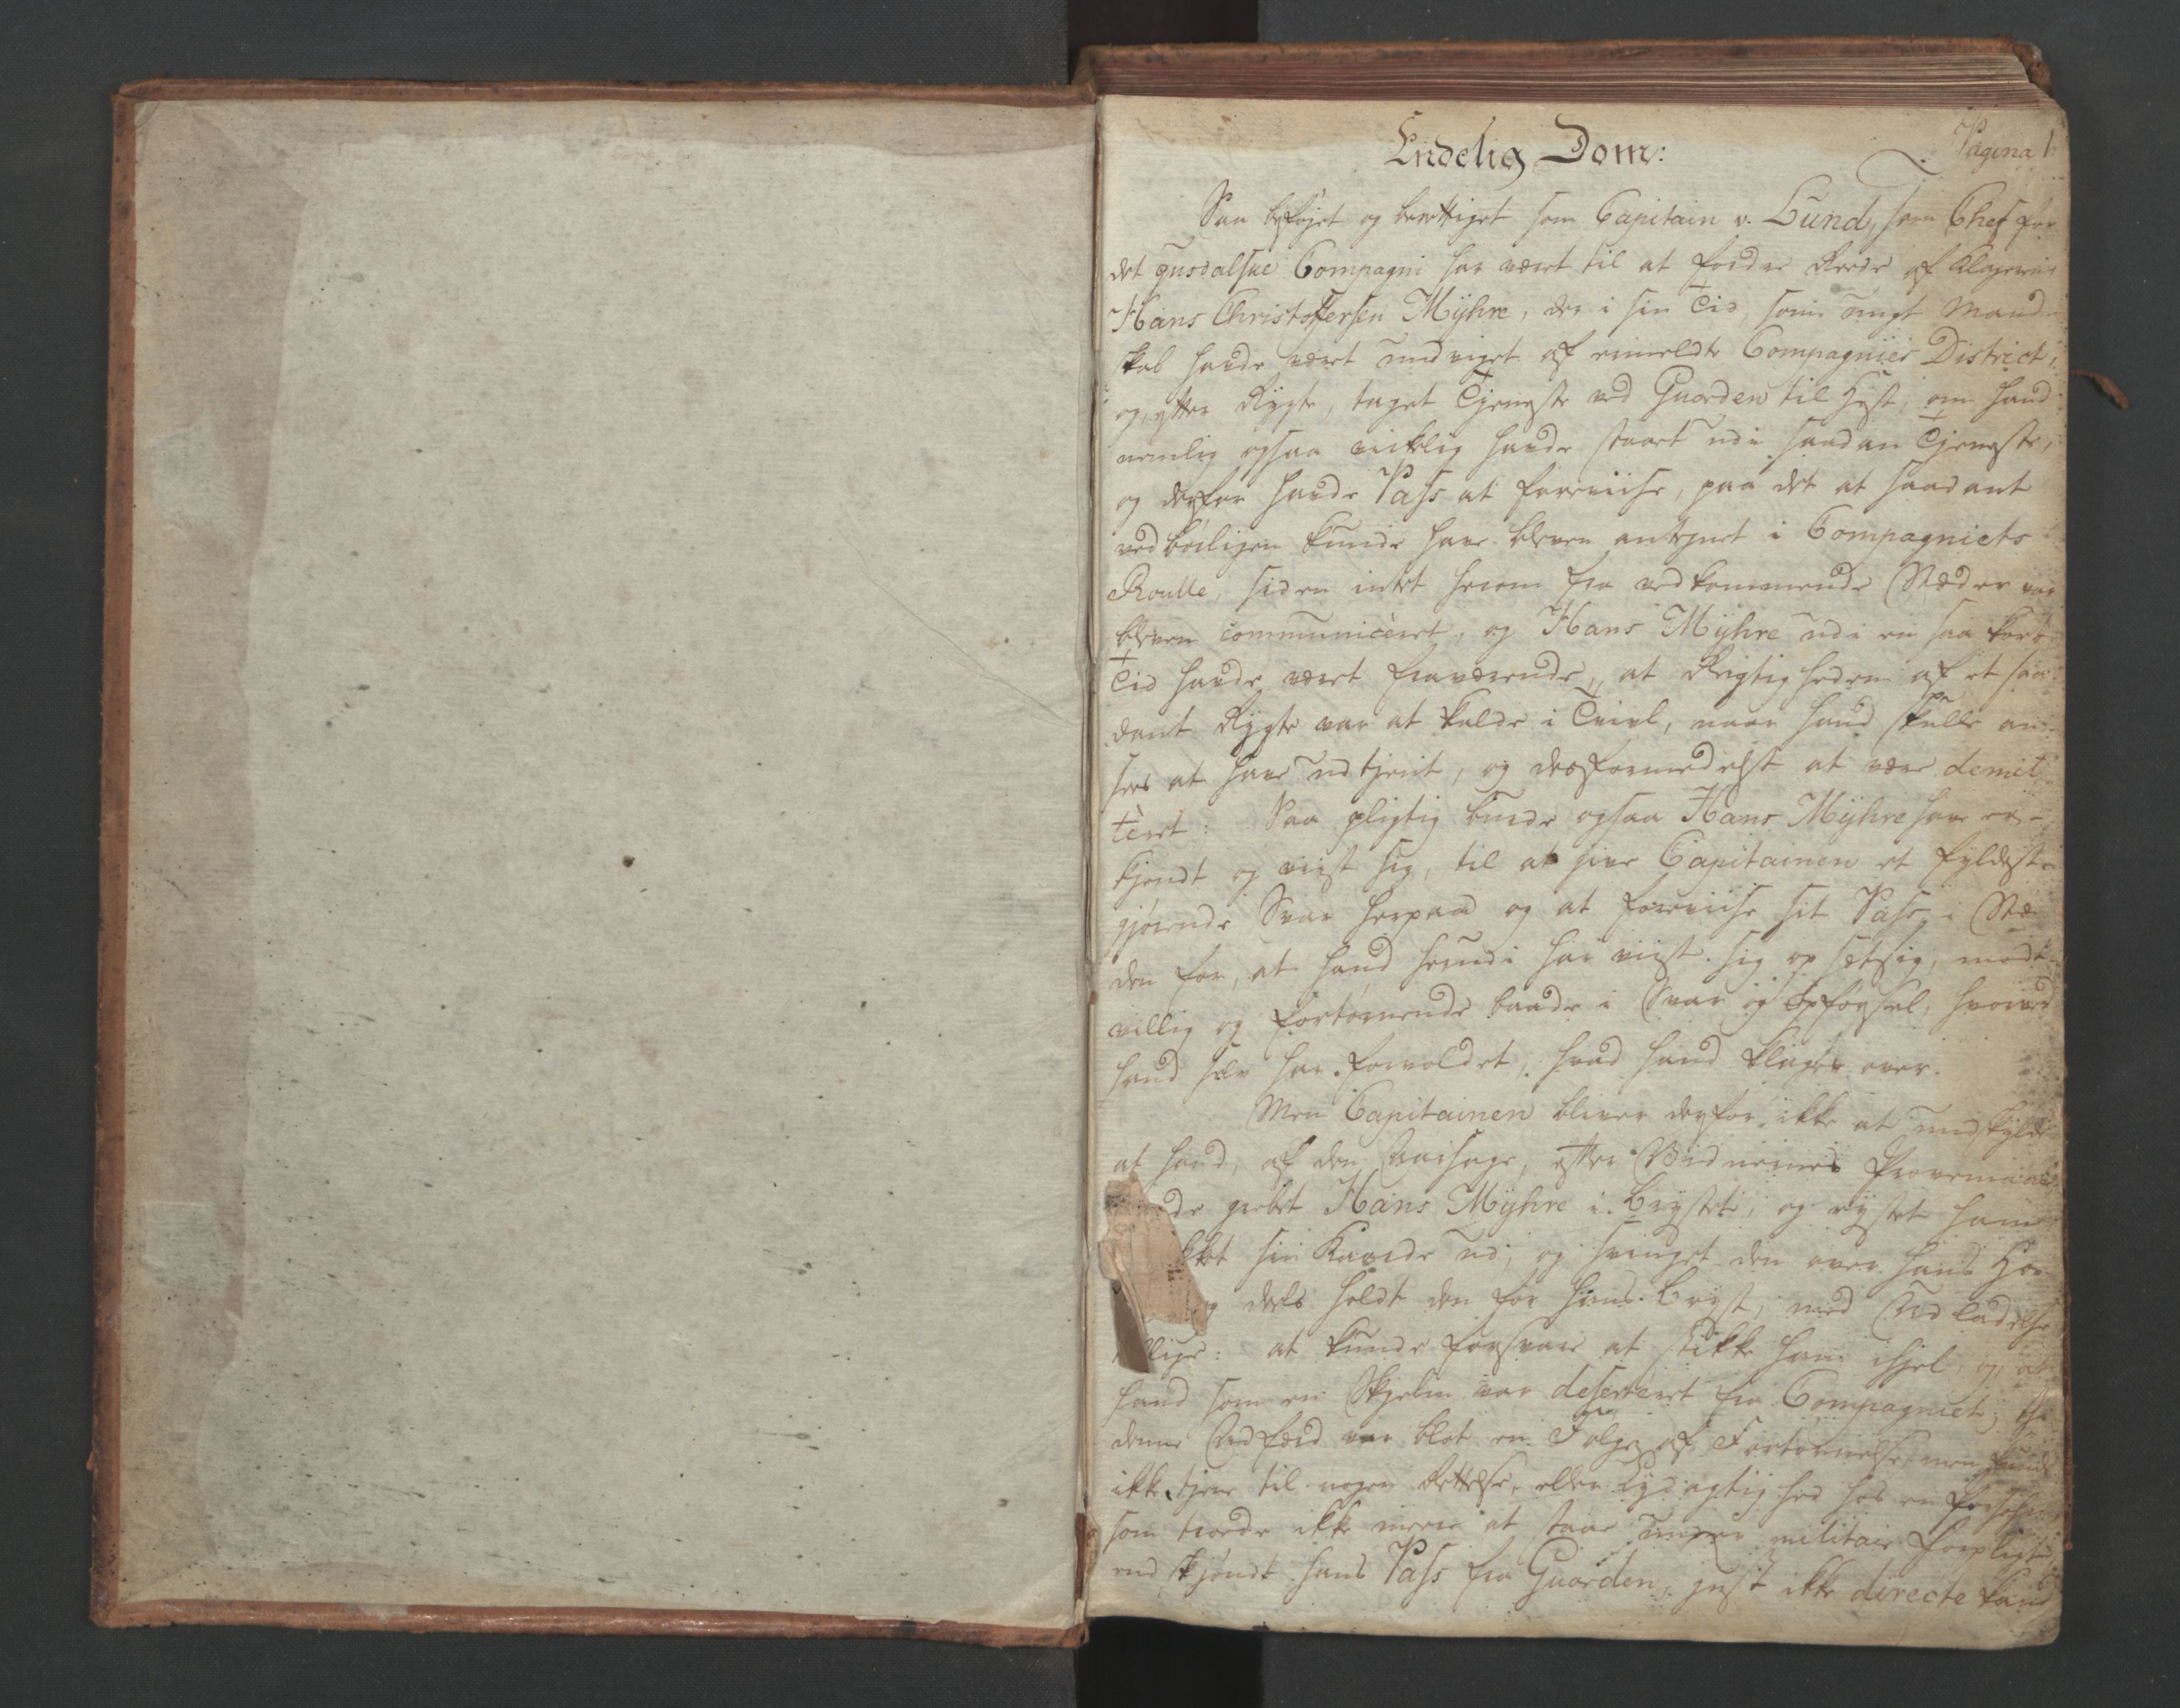 Pagina 1
Endelig Dom:
Saa beføjet og berettiget som Capitain v. Lund, som Chef for
det Gusdalske Compagni har været til at fordre Reede af Klageren
Hans Christoffersen Mÿhre, der i sin Tid, som ungt Mand-
skab havde været undviget af ermeldte Compagnies District,
og, efter Rygte, taget Tjeneste ved Guarden til Hest, om hand
nemlig ogsaa virkelig havde staaet udi saadan Tjeneste,
og derfor havde Pass at foreviise, paa det at saadant
vedbørligen kunde have bleven antegnet i Compagniets
Roulle, siden intet herom fra vedkommende Stæder var
bleven communiceret, og Hans Mÿhre udi en saa kort
Tid havde været fraværende, at Rigtigheden af et saa-
dant Rygte var at kalde i Tvivl, naar hand skulle an-
sees at have udtjent, og desformedelst at være demit-
teret: Saa pligtig burde ogsaa Hans Mÿhre have er-
kjendt og viist sig, til at give Capitainen et fyldest-
gjørende Svar herpaa og at foreviise sit Pass, i Stæ-
den for, at hand herudi har viist sig opsetsig, modt-
villig og fortørnende baade i Svar og Opførsel, hvorved
hand selv har forvoldet, hvad hand klager over.
Men Capitainen bliver derfor ikke at undskylde
at hand, af den Aarsage, efter Vidnernes Provemaal
grebet Hans Mÿhre i Brystet, og rystet ham
sin Kaarde ud, og svinget den over hans Ho-
og deels holdt den for hans Bryst, med Udladelse
at kunde forsvare at stikke ham ihjel, og at
hand som en Skjelm var deserteret fra Compagniet; thi
denne Adfærd var blot en Følge af Fortørnelse, men kunde
ikke tjene til nogen Rettelse, eller Lydagtighed hos en Person
som troede ikke meere at staae under militair Forpligt
endskjøndt hans Pass fra Guarden, just ikke directe kand